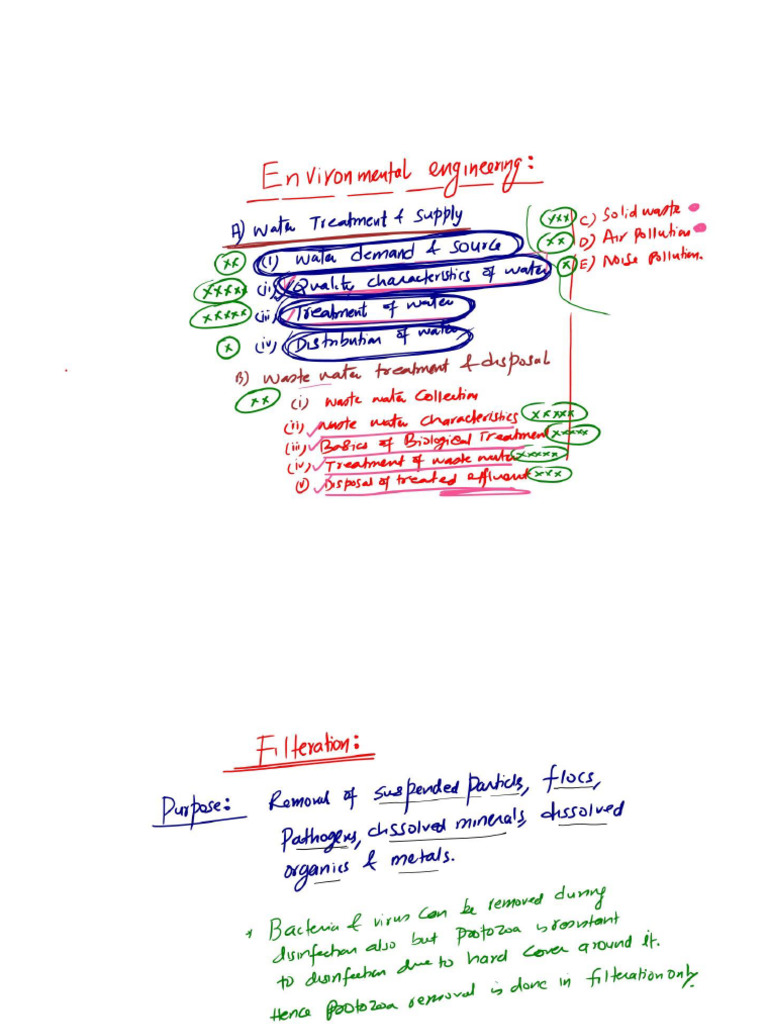 Environmental engineering:
A) Water Treatment & Supply
xx (i) Water demand & source
xxxxx (ii) Quality characteristics of water
xxxxx (iii) Treatment of water
x (iv) Distribution of water
xxx C) Solid waste
xx D) Air pollution
x E) Noise pollution.
B) Waste water treatment & disposal
xx (i) Waste water collection
(ii) waste water characteristics xxxxx
(iii) Basics of Biological Treatment xxxxx
(iv) Treatment of waste water xxxxx
(v) Disposal of treated effluent xxx
Filteration:
Purpose: Removal of suspended particls, flocs,
Pathogens, dissolved minerals, dissolved
organics & metals.
* Bacteria & virus can be removed during
disinfection also but protozoa is resistant
to disinfection due to hard cover around it.
Hence protozoa removal is done in filteration only.